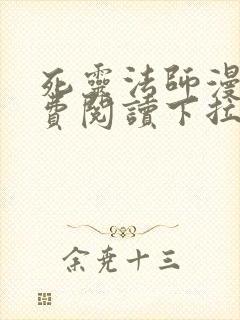 死靈法師漫
費閱讀下拉
余堯十三